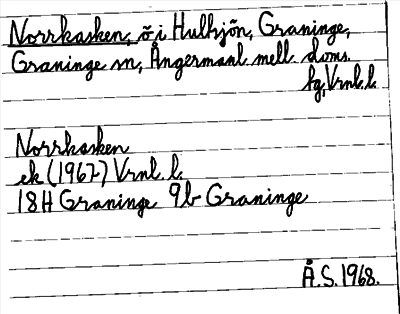 Norrkasken, ö i Hulhjön, Graninge,
Graninge sn, Ångermanl. mell. doms.
fg, Vrnl. l.
Norrkasken
ek (1967) Vrnl. l.
18H Graninge 9b Graninge
Å.S. 1968.